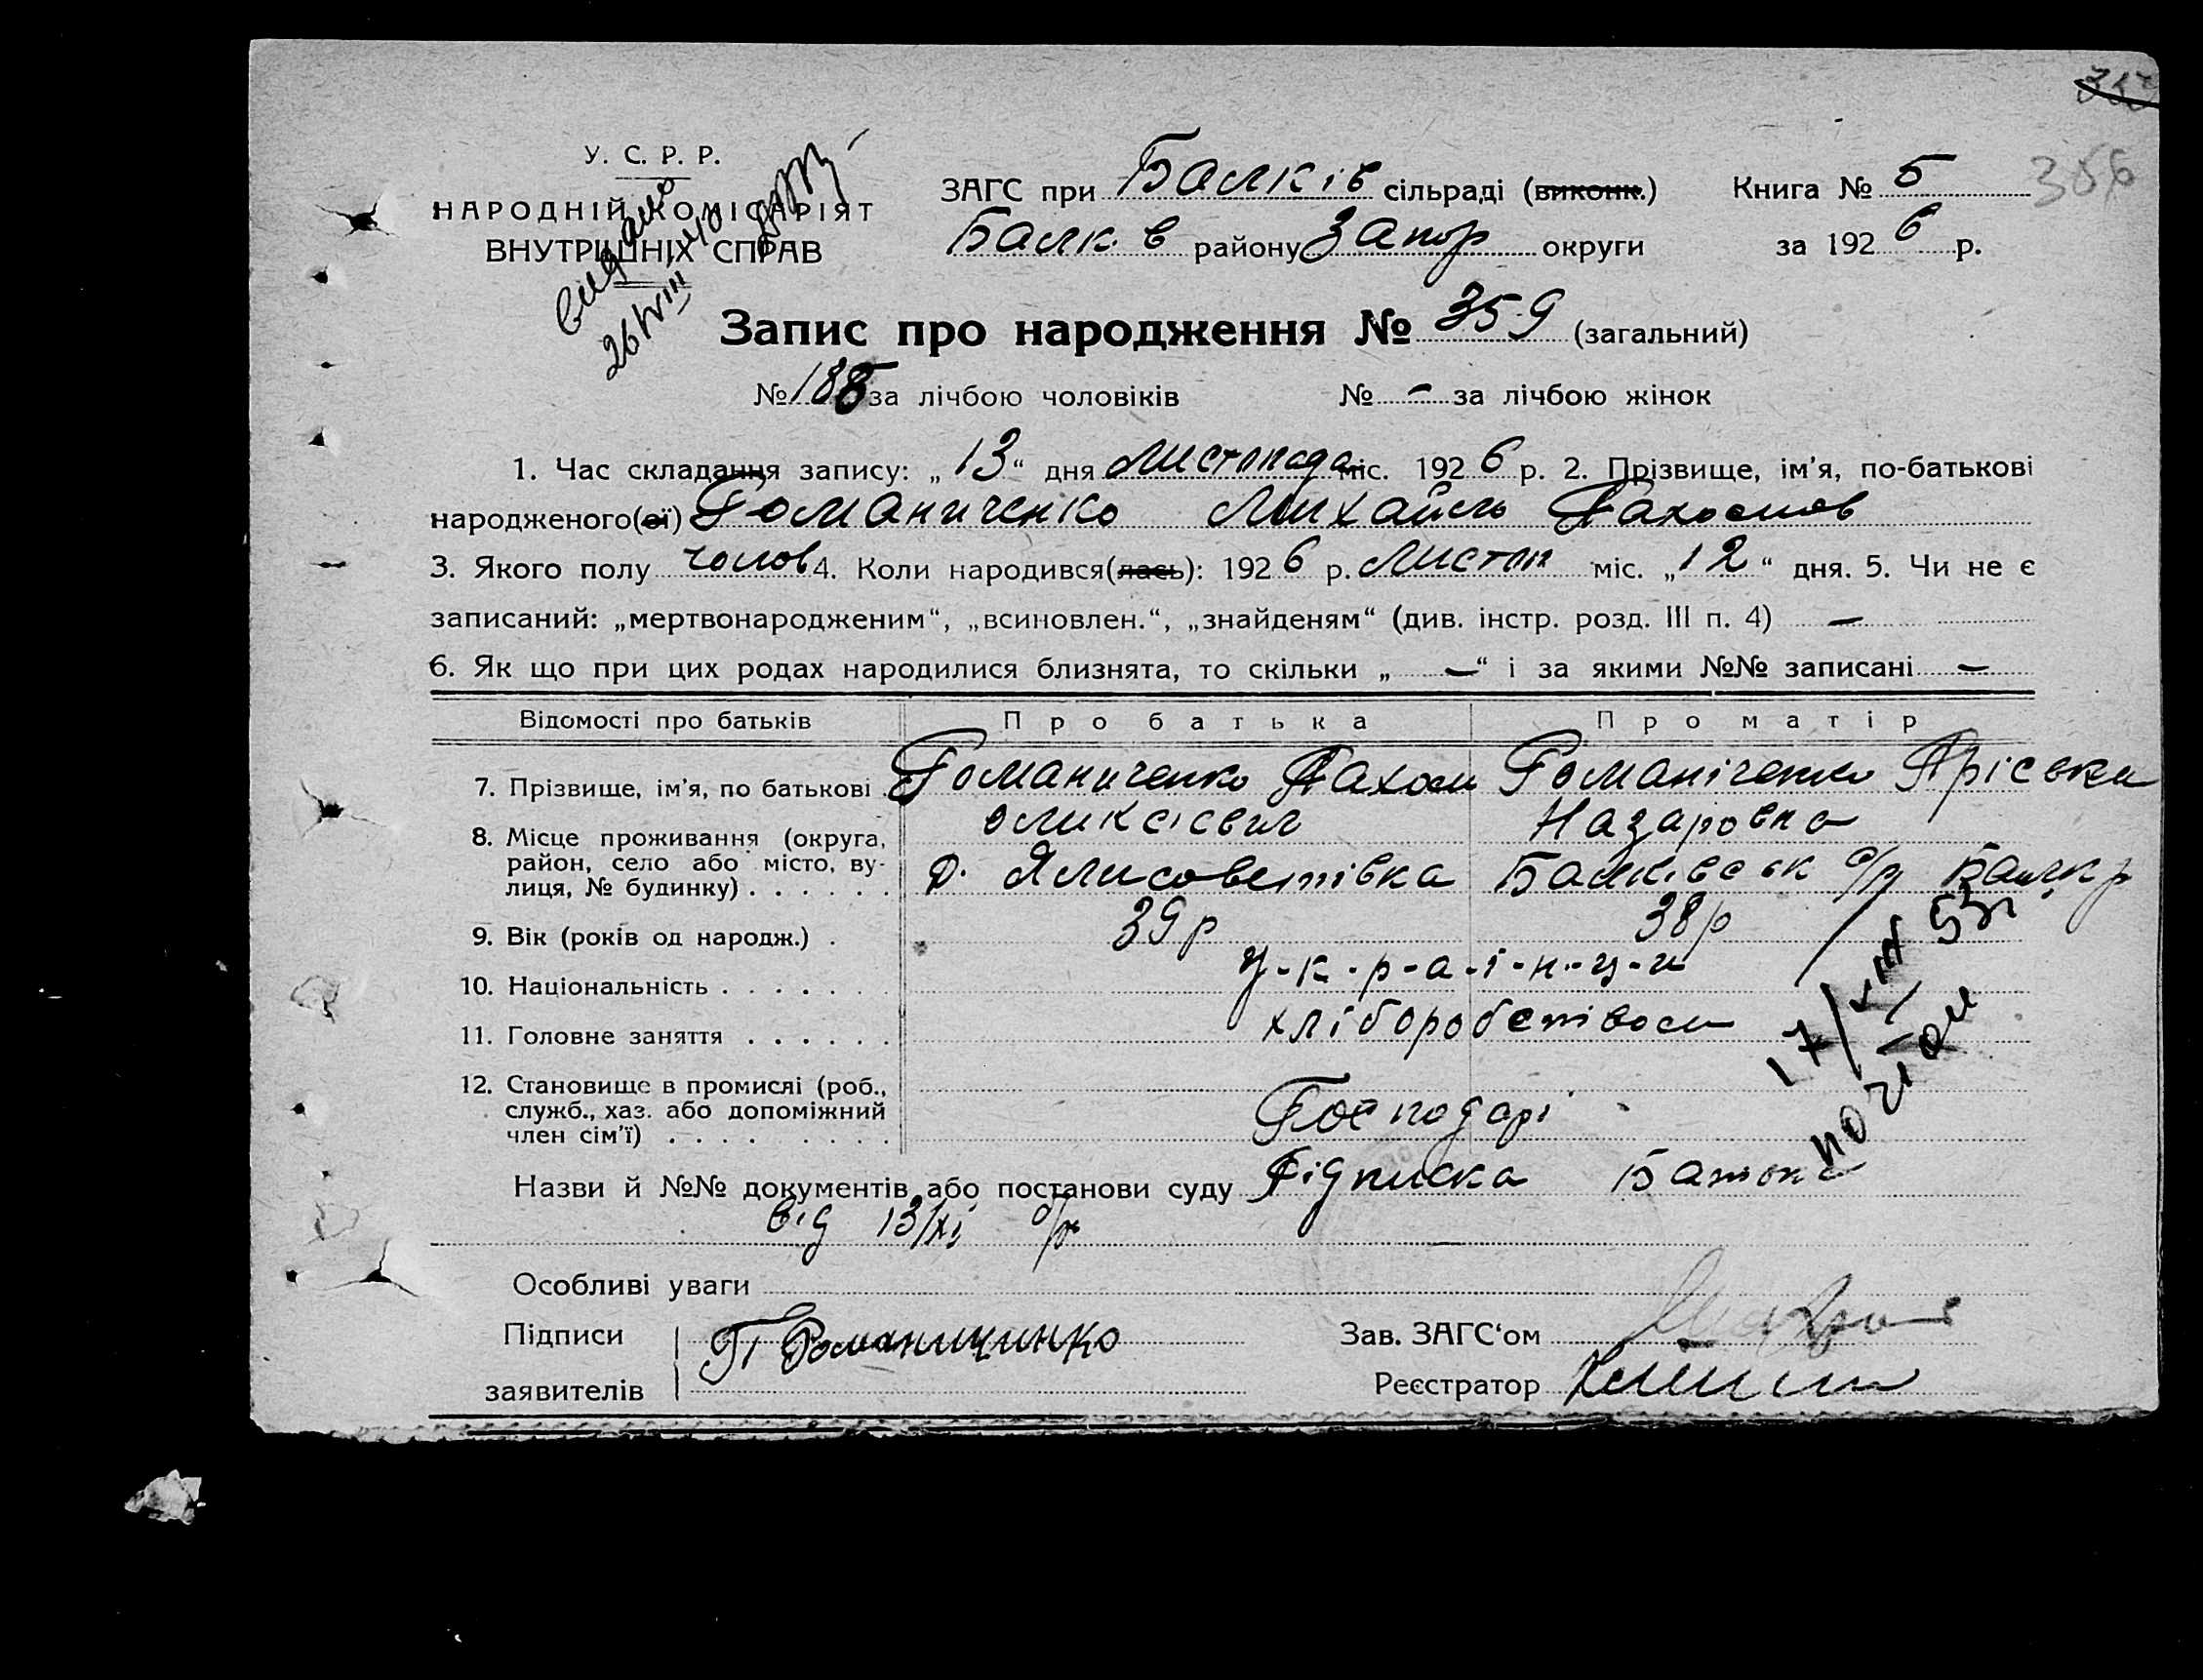 356
У. С. Р. Р.
НАРОДНІЙ КОМІСАРІЯТ
ВНУТРІШНІХ СПРАВ
видано
26/VIII 40
ЗАГС при Балків сільраді (виконк.) Книга № 5
Балк. в району Запор округи за 1926 р.
Запис про народження № 359 (загальний)
№ 188 за лічбою чоловіків № – за лічбою жінок
1. Час складання запису: „13“ дня листопада міс. 1926 р. 2. Прізвище, ім’я, по-батькові
народженого(ої) Романиченко Михайль Пахомов
3. Якого полу чолов 4. Коли народився(лась): 1926 р. листоп міс. „12“ дня. 5. Чи не є
записаний: „мертвонародженим“, „всиновлен.“, „знайденям“ (див. інстр. розд. III п. 4) –
6. Як що при цих родах народилися близнята, то скільки „ – “ і за якими №№ записані –
Відомості про батьків Про батька Про матір
7. Прізвище, ім’я, по батькові Романиченко Пахом Романіченко Пріська
Оликсієвич Назаровна
8. Місце проживання (округа, район, село або місто, вулиця, № будинку) . . . . . . с. Ялисоветівка Балківськ с/р Балк р
9. Вік (років од народж.) . 39 р 38 р
10. Національність . . . . . . . у-к-р-а-ї-н-ц-и
11. Головне заняття . . . . . . хліборобством
12. Становище в промислі (роб., служб., хаз. або допоміжний член сім’ї) . . . . . . . . . Господарі
17/VIII 53г
Назви й №№ документів або постанови суду Підписка Батька
від 13/XI б/р
Особливі уваги
Підписи П Романищинко Зав. ЗАГС‘ом
заявителів Реєстратор